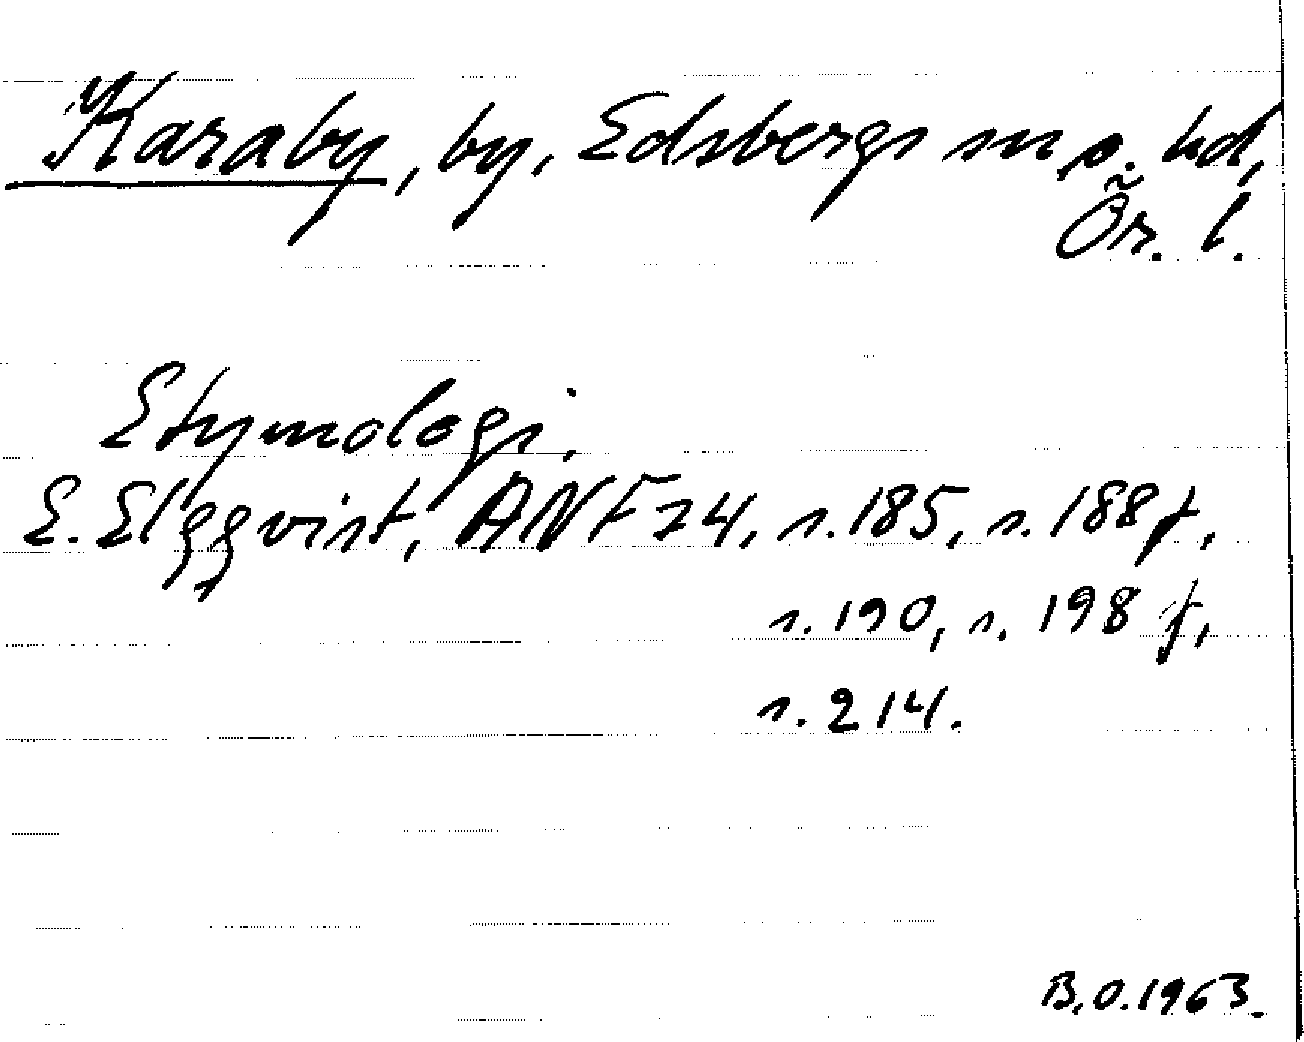 Karaby, by, Edsbergs sn o. hd,
Ör. l.
Etymologi.
E. Elgqvist, ANF 74, s. 185, s. 188 f,
s. 190, s. 198 f,
s. 214.
B.O. 1963.